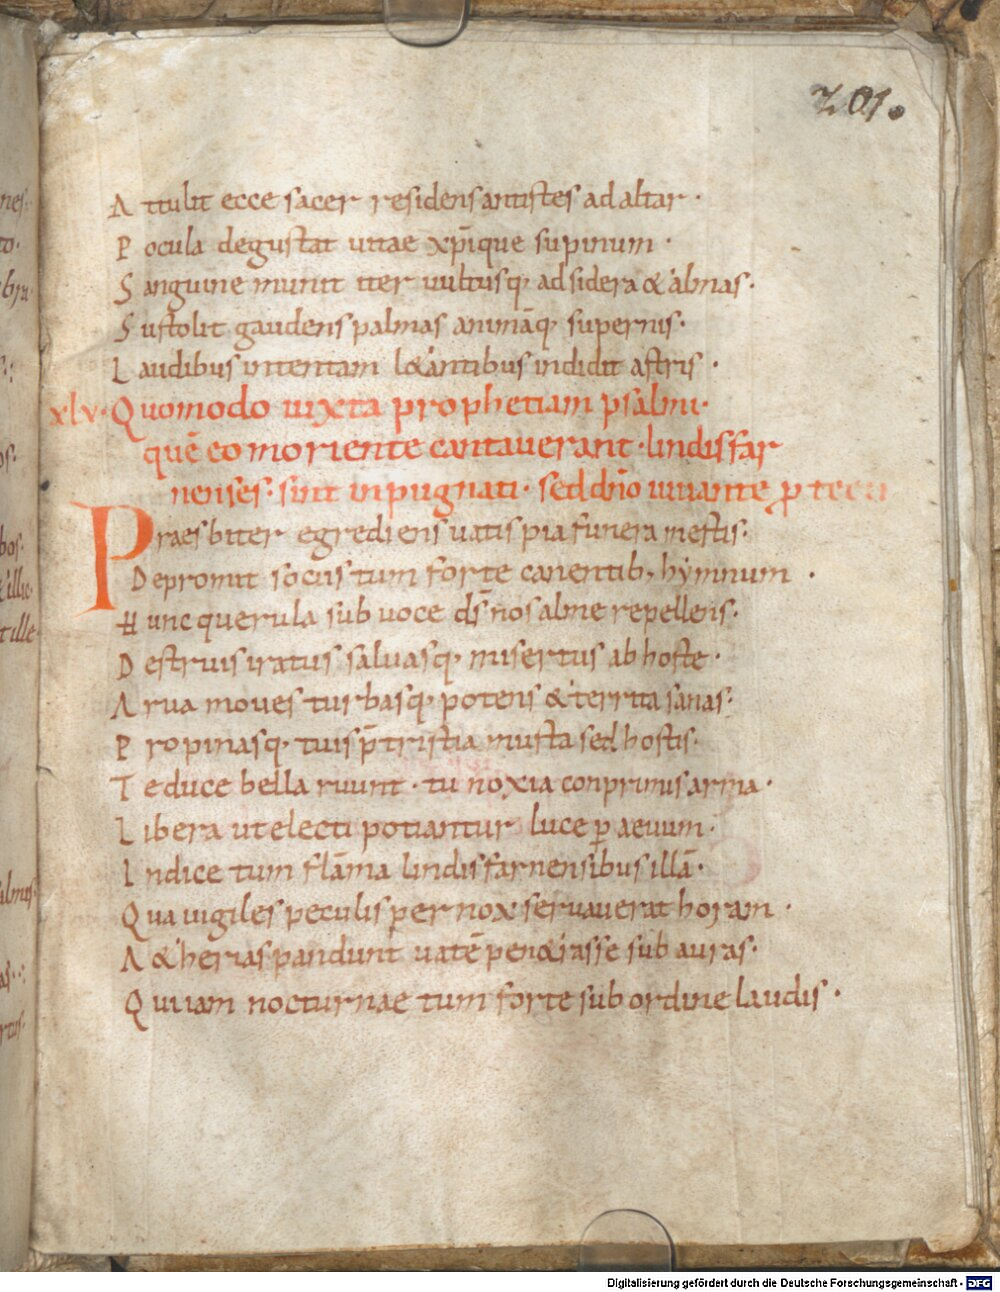 201.
A ttulit ecce sacer residens antistes ad altar ·
P ocula degustat uitae xp̄ique supinum ·
S anguine munit iter uultusq; ad sidera & almas ·
S ustolit gaudens palmas animāq; supernis ·
L audibus intentam l&antibus indidit astris ·
xlv · Quomodo iuxta prophetiam psalmi ·
quē eo moriente cantauerant · lindisfar
nenses · sint inpugnati · sed dn̄o iuuante ꝑtecti
Praesbiter egrediens uatis pia funera mestis ·
D epromit sociis tum forte canentib; hymnum ·
H unc querula sub uoce ds̄ nos alme repellens ·
D estruis iratus saluasq; misertus ab hoste ·
A rua moues turbasq; potens & territa sanas ·
P ropinasq; tuis p̄ tristia musta sed hostis ·
T e duce bella ruunt · tu noxia conprimis arma ·
L ibera ut electi potiantur luce ꝑ aeuum ·
I ndice tum flāma lindisfarnensibus illā ·
Q ua uigil e speculis pernox seruauerat horam ·
A &herias pandunt uatē pen&rasse sub auras ·
Q ui iam nocturnae tum forte sub ordine laudis ·
Digitalisierung gefördert durch die Deutsche Forschungsgemeinschaft - DFG